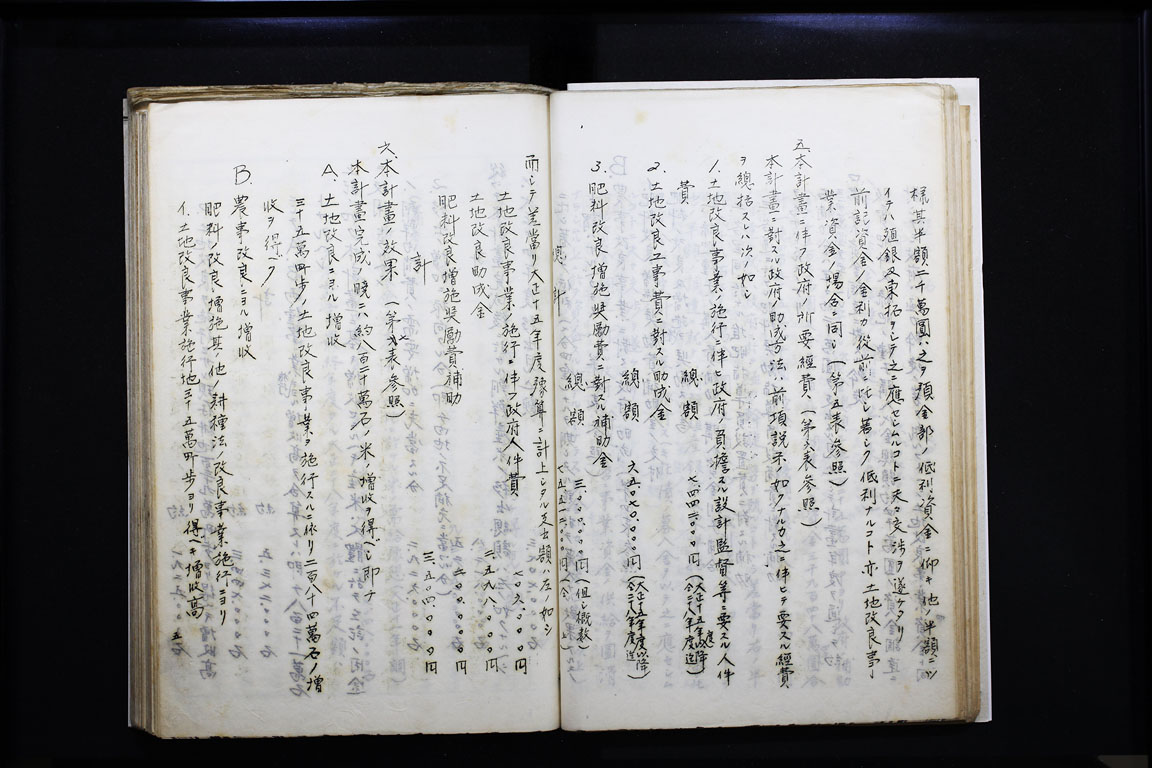 様其半額二千萬圓ハ之ヲ預金部ノ低利資金ニ仰キ他ノ半額ニツ
イテハ殖銀及東拓ヲシテ之ニ應セシムルコトニ夫々交渉ヲ遂ケタリ
前記資金ノ金利カ従前ニ比シ著シク低利ナルコト亦土地改良事
業資金ノ場合ニ同シ(第五表参照)
五、本計畫ニ伴フ政府ノ所要経費(第六表参照)
本計畫ニ對スル政府ノ助成方法ハ前項説示ノ如クナルカ之ニ伴ヒテ要スル経費
ヲ總括スレハ次ノ如シ
1.土地改良事業ノ施行ニ伴ヒ政府ノ負擔スル設計監督等ニ要スル人件
費 總額
2.土地改良工事費ニ對スル助成金
總額 六五〇七〇、〇〇〇円
3.肥料改良増施奨励費ニ對スル補助金
總額 三〇〇、〇〇〇円(但シ概数)
而シテ差當リ大正十五年度豫算ニ計上シタル支出額ハ左ノ如シ
土地改良事業ノ施行ニ伴フ政府人件費
土地改良助成金
肥料改良増施奨励費補助
計
六、本計畫ノ効果(第七表参照)
本計畫完成ノ暁ニハ約八百二十萬石ノ米ノ増收ヲ得ベシ即チ
A.土地改良ニヨル増收
三十五萬町歩ノ土地改良事業ヲ施行スルニ依リ二百八十四萬石ノ増
收ヲ得ベク
B.農事改良ニヨル増收
肥料ノ改良増施其ノ他ノ耕種法ノ改良事業施行ニヨリ
イ.土地改良事業施行地三十五萬町歩ヨリ得ベキ増收高